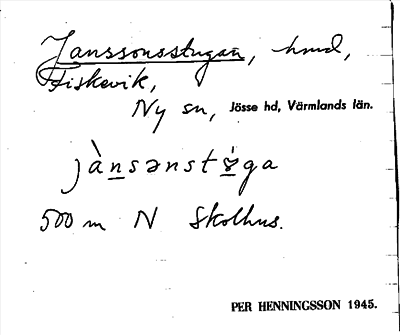 Janssonsstugan, hmd,
Fiskevik,
Ny sn, Jösse hd, Värmlands län.
jànsənstga
500 m N Skolhus.
PER HENNINGSSON 1945.